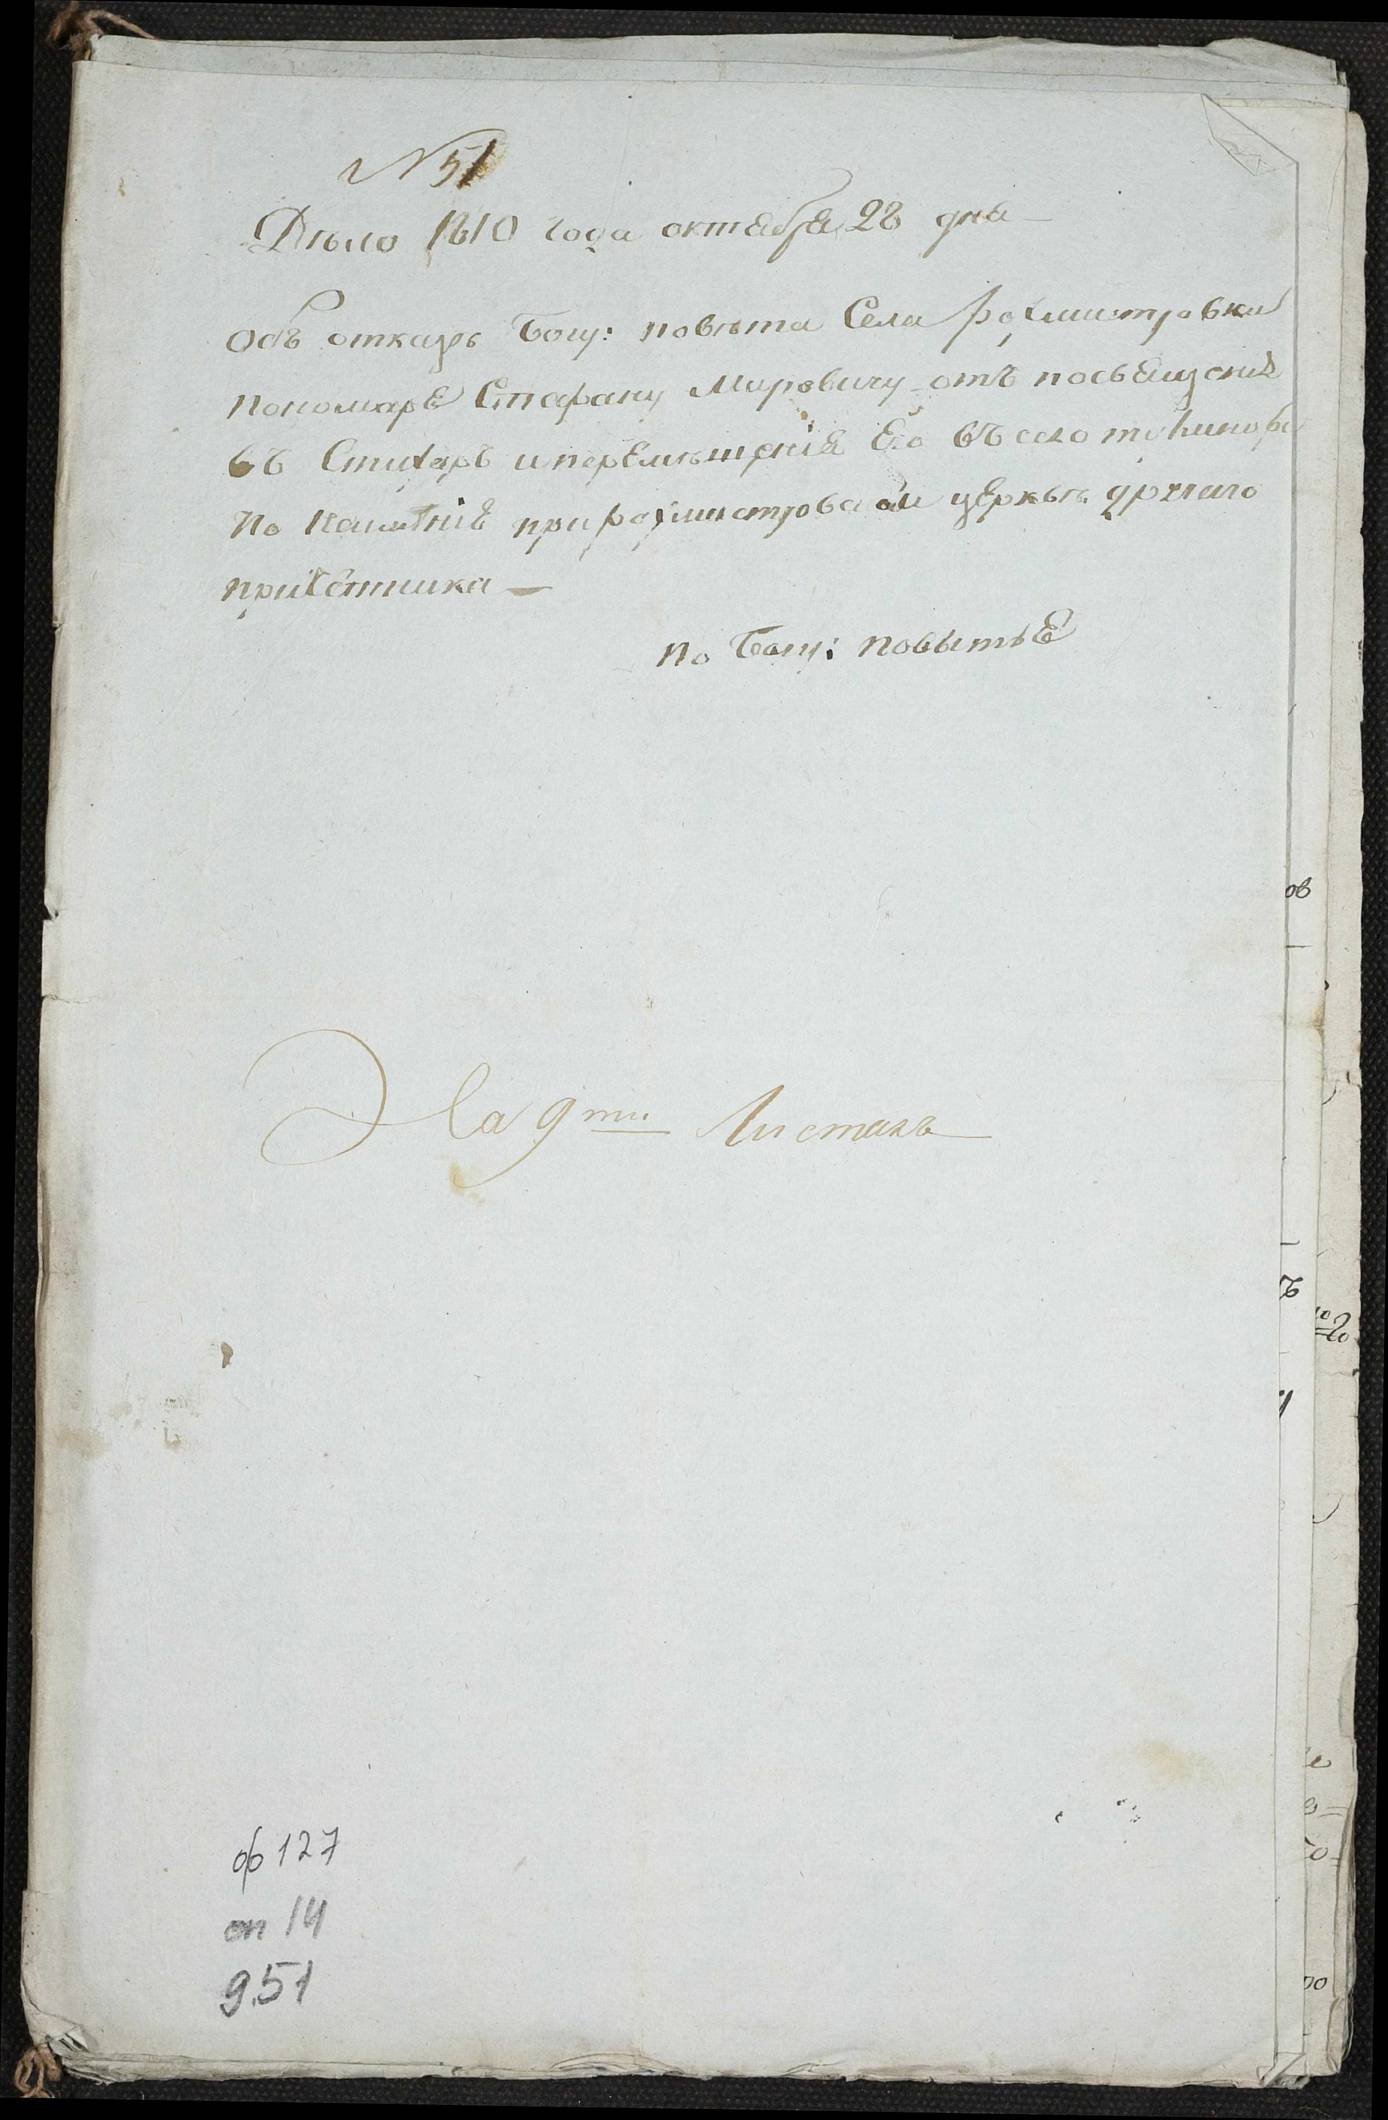 № 51
Дѣло 1810 года октября 28 дня
Объ отказѣ Богу: повѣта Села Ротмистровки
пономарю Стефану Мировичу отъ посвещенія
въ Стихарь и перемѣщеніе Его въ село
По Неимѣнію при Ротмистровской церквѣ другаго
причетника —
По Богу: повытью
На 9ти Листахъ
ф 127
оп 14
д. 51